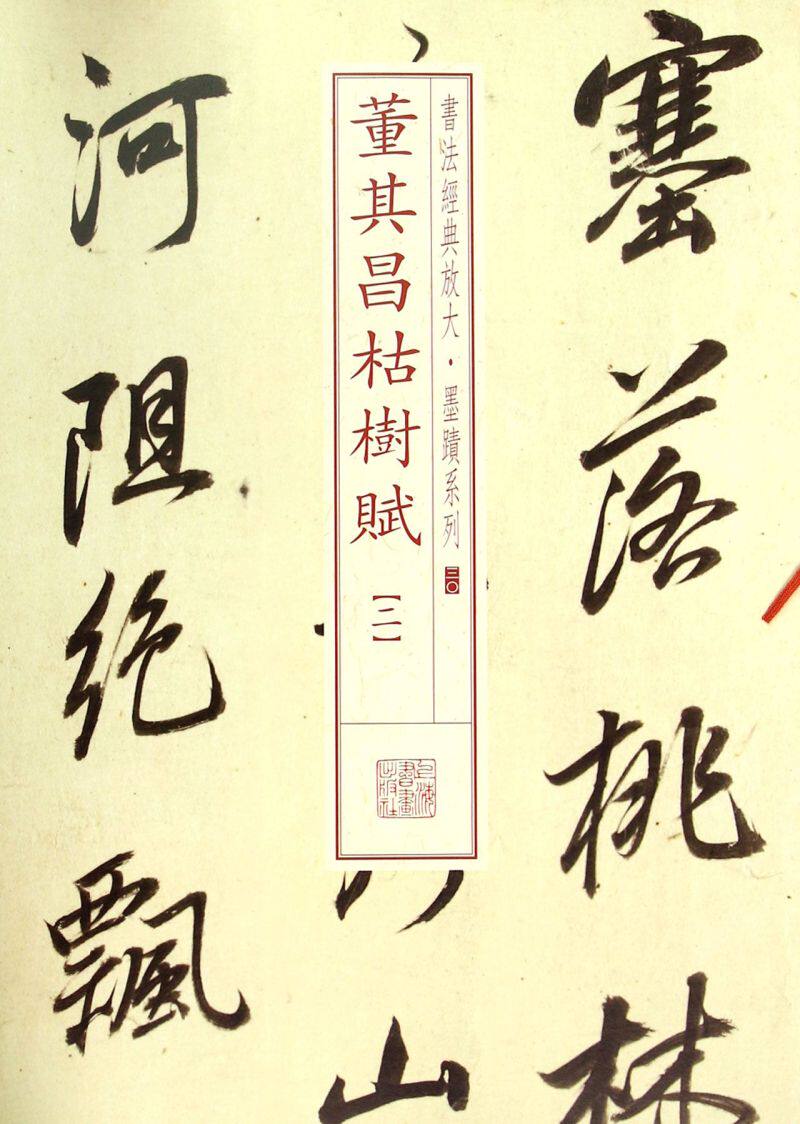 塞落桃林
書法經典放大·墨蹟系列 三〇
董其昌枯樹賦【二】
上海書畫出版社
山
河阻絕飄